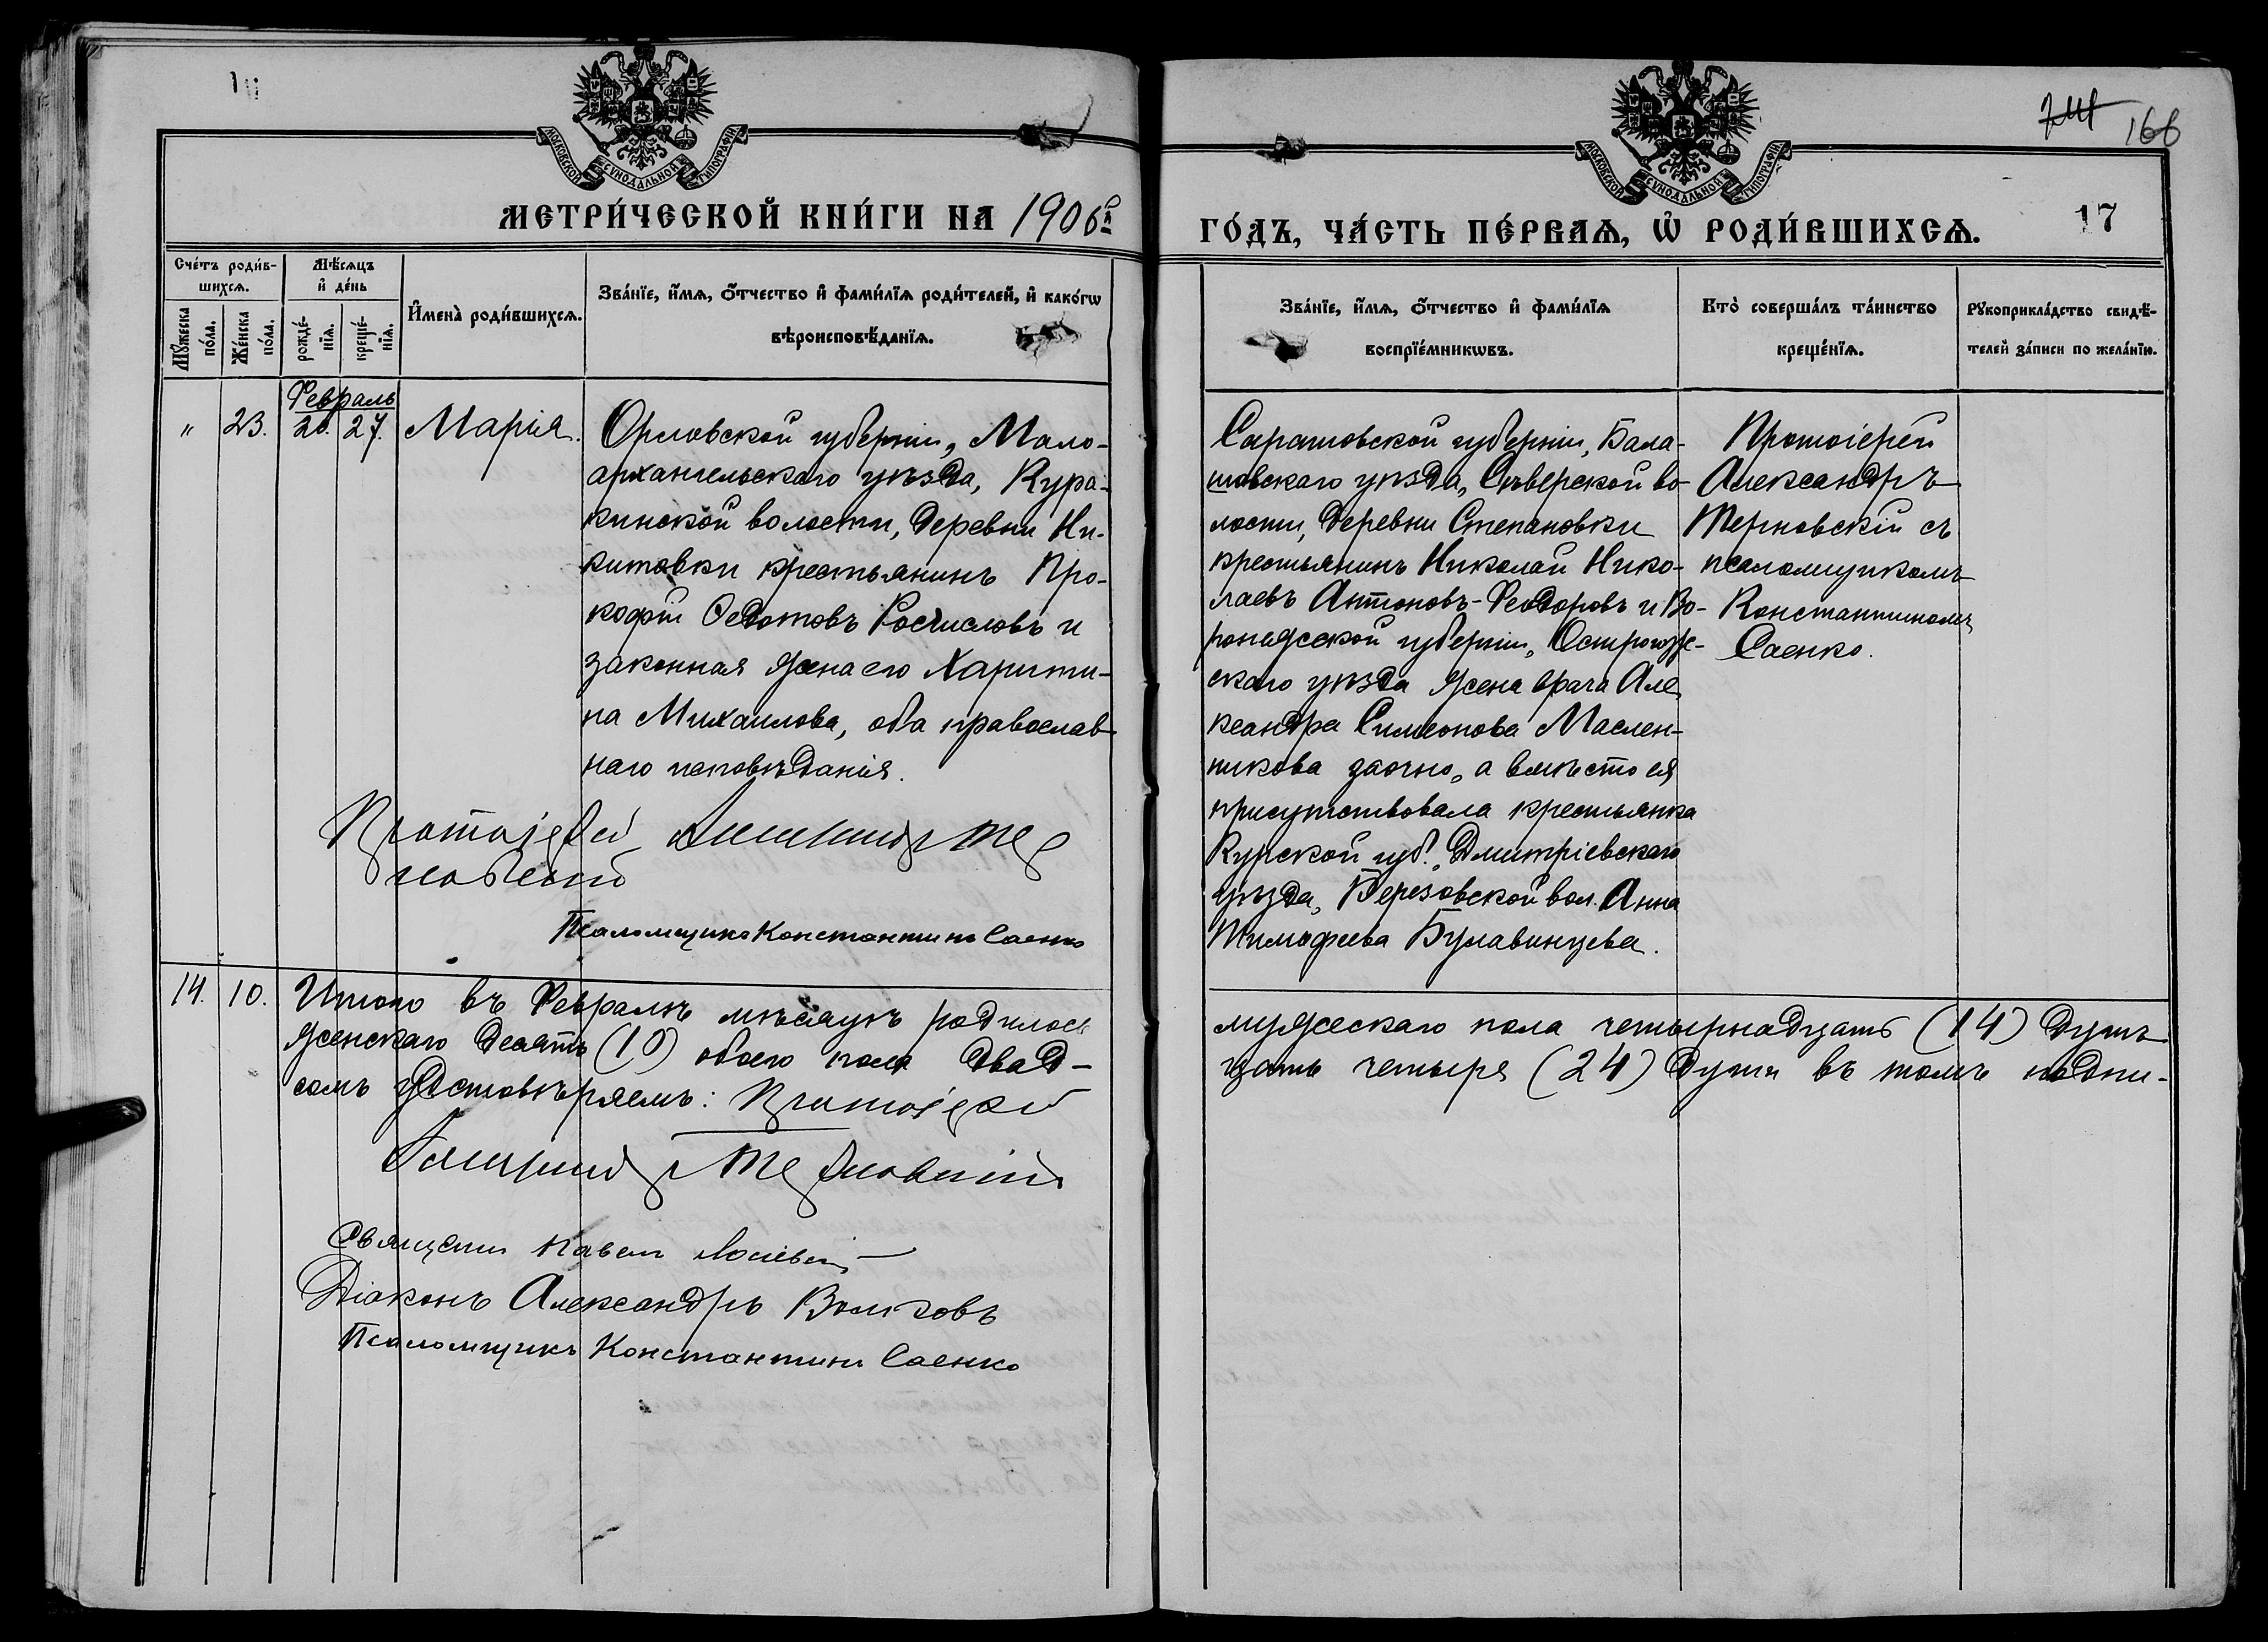 166
17
МОСКОВСКОЙ СѴНОДАЛЬНОЙ ТИПОГРАФІИ
МОСКОВСКОЙ СѴНОДАЛЬНОЙ ТИПОГРАФІИ
МЕТРИ́ЧЕСКОЙ КНИ́ГИ НА 1906й
ГО́ДЪ, ЧА́СТЬ ПЕ́РВАѦ, Ѡ҆ РОДИ́ВШИХСѦ.
Сче́тъ роди́в-
шихсѧ.
Мꙋ́жеска по́ла.
Же́нска по́ла.
Мѣ́сѧцъ
и҆ де́нь
рожде́-
нїѧ.
креще́-
нїѧ.
И҆мена̀ роди́вшихсѧ.
Зва́нїе, и҆́мѧ, ѻ҆́тчество и҆ фами́лїѧ роди́телей, и҆ како́гѡ
вѣроисповѣ́данїѧ.
Зва́нїе, и҆́мѧ, ѻ҆́тчество и҆ фами́лїѧ
воспрїе́мникѡвъ.
Кто̀ соверша́лъ та́инство
креще́нїѧ.
Рꙋкоприкла́дство свидѣ́-
телей за́писи по жела́нїю.
Февраль
" 23. 20. 27. Марія.
Орловской губерніи, Мало-
архангельскаго уѣзда, Кура-
кинской волости, деревни Ни-
китовки крестьянинъ Про-
кофій Ѳедотовъ Росчисловъ и
законная жена его Харити-
на Михаилова, оба православ-
наго исповѣданія.
Протоіерей Александръ Тер
новскій
Псаломщикъ Константинъ Саенко
Саратовской губерніи, Бала-
шовскаго уѣзда, Сѣверской во-
лости, деревни Степановки
крестьянинъ Николай Нико-
лаевъ Антоновъ-Феодоровъ и Во-
ронежской губерніи, Острогож-
скаго уѣзда жена врача Але
ксандра Симеонова Маслен-
никова заочно, а вмѣсто ея
присутствовала крестьянка
Курской губ., Дмитріевскаго
уѣзда, Березовской вол. Анна
Тимофеева Булавинцева.
Протоіерей
Александръ
Терновскій съ
псаломщикомъ
Константиномъ
Саенко.
14. 10. Итого въ Февралѣ мѣсяцѣ родилось
мужескаго пола четырнадцать (14) душъ
женскаго десять (10) обоего пола двад-
цать четыре (24) души въ томъ подпи-
сомъ удостовѣряемъ: Протоіерей
Александръ Терновскій
Священн Павелъ
Діаконъ Александръ Волковъ
Псаломщикъ Константинъ Саенко